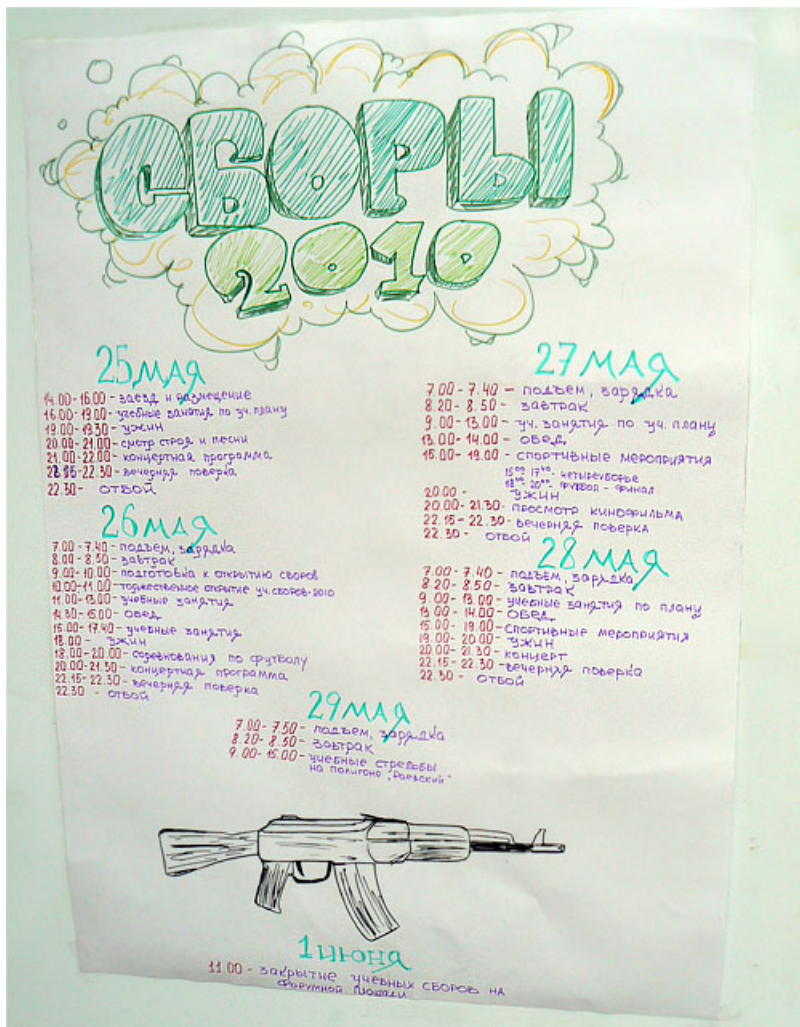 СБОРЫ
2010
25 МАЯ
14.00-16.00 - заезд и размещение
16.00-19.00 - учебные занятия по уч. плану
19.00-19.30 - ужин
20.00-21.00 - смотр строя и песни
21.00-22.00 - концертная программа
22.15-22.30 - вечерняя поверка
22.30 - отбой
26 МАЯ
7.00-7.40 - подъем, зарядка
8.00-8.50 - завтрак
9.00-10.00 - подготовка к открытию сборов
10.00-11.00 - торжественное открытие уч. сборов-2010
11.00-13.00 - учебные занятия
14.30-15.00 - обед
15.00-17.40 - учебные занятия
18.00 - ужин
18.00-20.00 - соревнования по футболу
20.00-21.30 - концертная программа
22.15-22.30 - вечерняя поверка
22.30 - отбой
27 МАЯ
7.00-7.40 - подъем, зарядка
8.20-8.50 - завтрак
9.00-13.00 - уч. занятия по уч. плану
13.00-14.00 - обед
15.00-19.00 - спортивные мероприятия
15.00 17.40 - четыреборье
18.00 - 20.00 - футбол - финал
20.00 - ужин
20.00-21.30 - просмотр кинофильма
22.15-22.30 - вечерняя поверка
22.30 - отбой
28 МАЯ
7.00-7.40 - подъем, зарядка
8.20-8.50 - завтрак
9.00-13.00 - учебные занятия по плану
13.00-14.00 - обед
15.00-19.00 - спортивные мероприятия
19.00-20.00 - ужин
20.00-21.30 - концерт
22.15-22.30 - вечерняя поверка
22.30 - отбой
29 МАЯ
7.00-7.50 - подъем, зарядка
8.20-8.50 - завтрак
9.00-15.00 - учебные стрельбы
на полигоне "Раевский"
1 июня
11.00 - закрытие учебных сборов на
Форумной площади